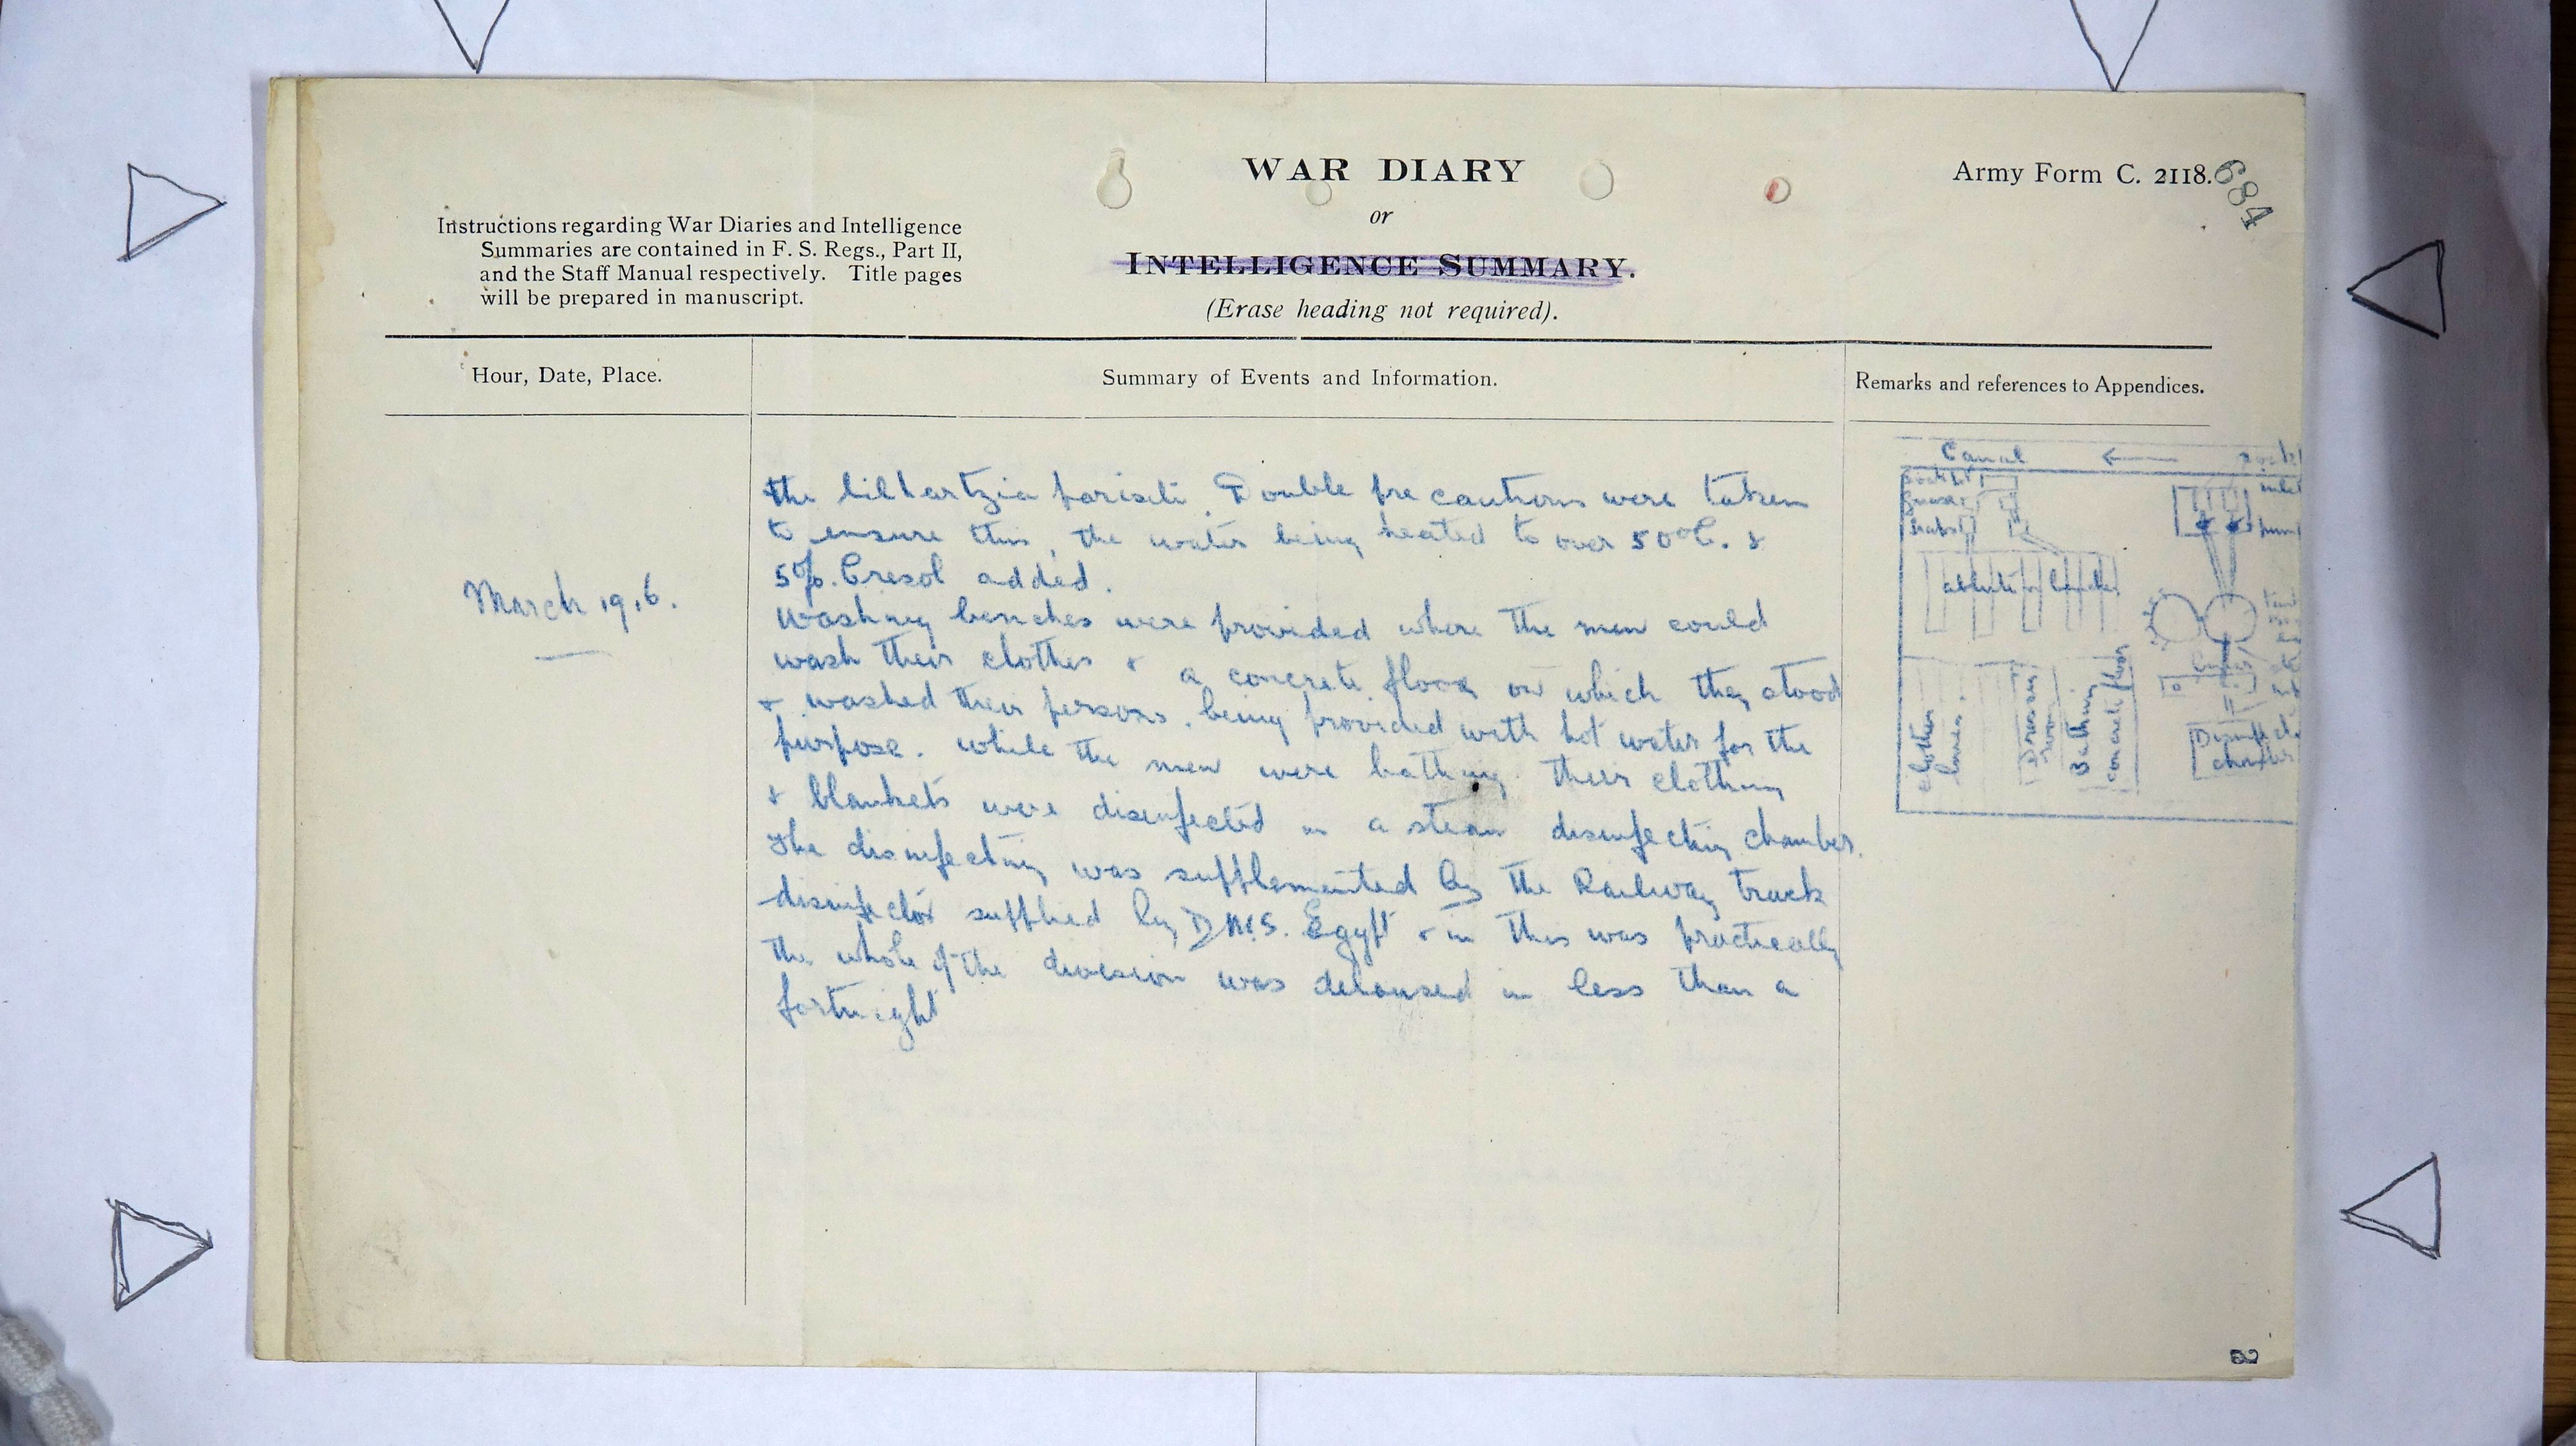 WAR DIARY
or
INTELLIGENCE SUMMARY.
(Erase heading not required).
Army Form C. 2118.
684
Instructions regarding War Diaries and Intelligence
Summaries are contained in F. S. Regs., Part II,
and the Staff Manual respectively. Title pages
will be prepared in manuscript.
Hour, Date, Place.
Summary of Events and Information.
Remarks and references to Appendices.
March 1916.
the bilhartzia pariseti. Double precautions were taken
to ensure this, the water being heated to over 50°C. &
5%. Cresol added.
Washing benches were provided where the men could
wash their clothes & a concrete floor on which they stood
& washed their persons, being provided with hot water for the
purpose. While the men were bathing their clothing
& blankets were disinfected in a steam disinfecting chamber.
The disinfecting was supplemented by the Railway truck
disinfector supplied by DMS. Egypt & in this was practically
the whole of the division was deloused in less than a
fortnight
Canal
inlet
pump
ablution benches
clothes
lines.
Dressing
room
Bathing
concrete floor
Disinfect.
chamber
2